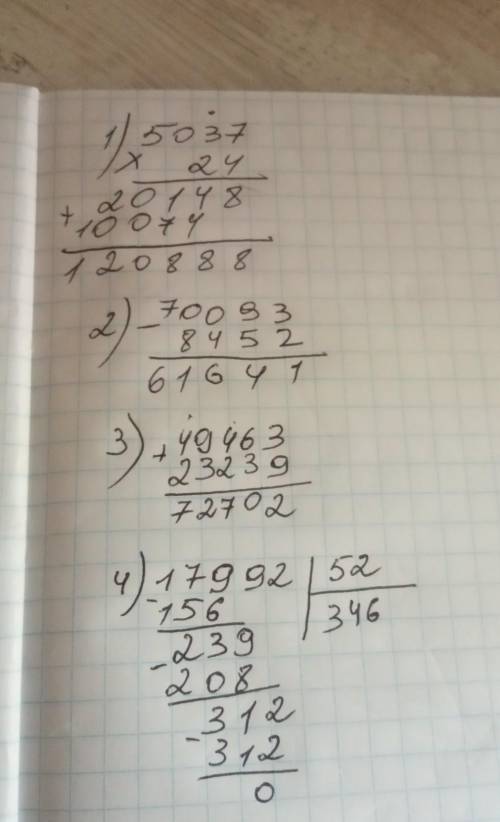 1) 5037
× 24
20148
+ 10074
120888
2) - 70093
8452
61641
3) + 49463
23239
72702
4) - 17992 | 52
156 346
- 239
208
- 312
312
0